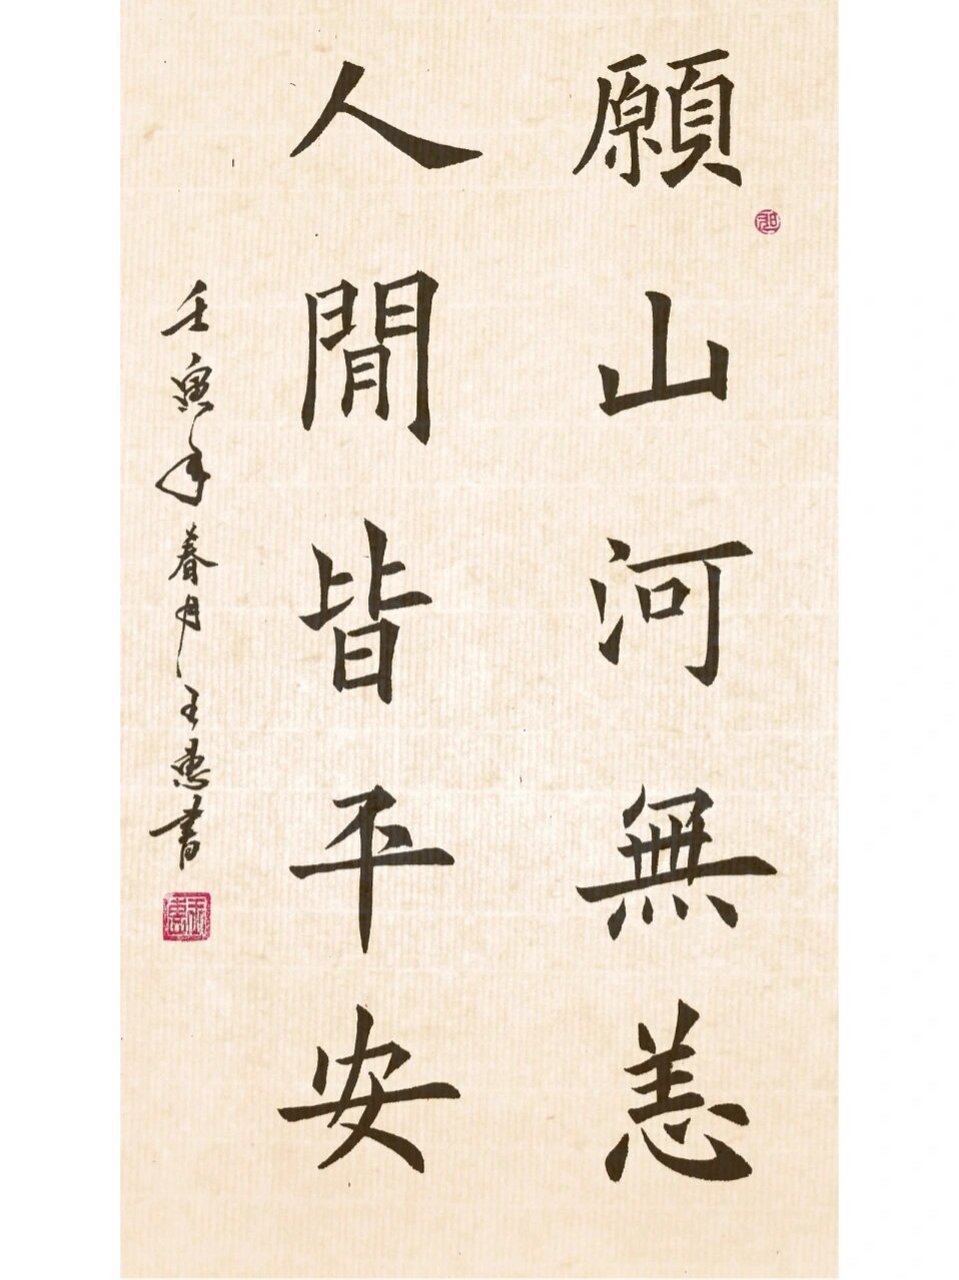 願山河無恙
人間皆平安
壬寅年暮月王惠書